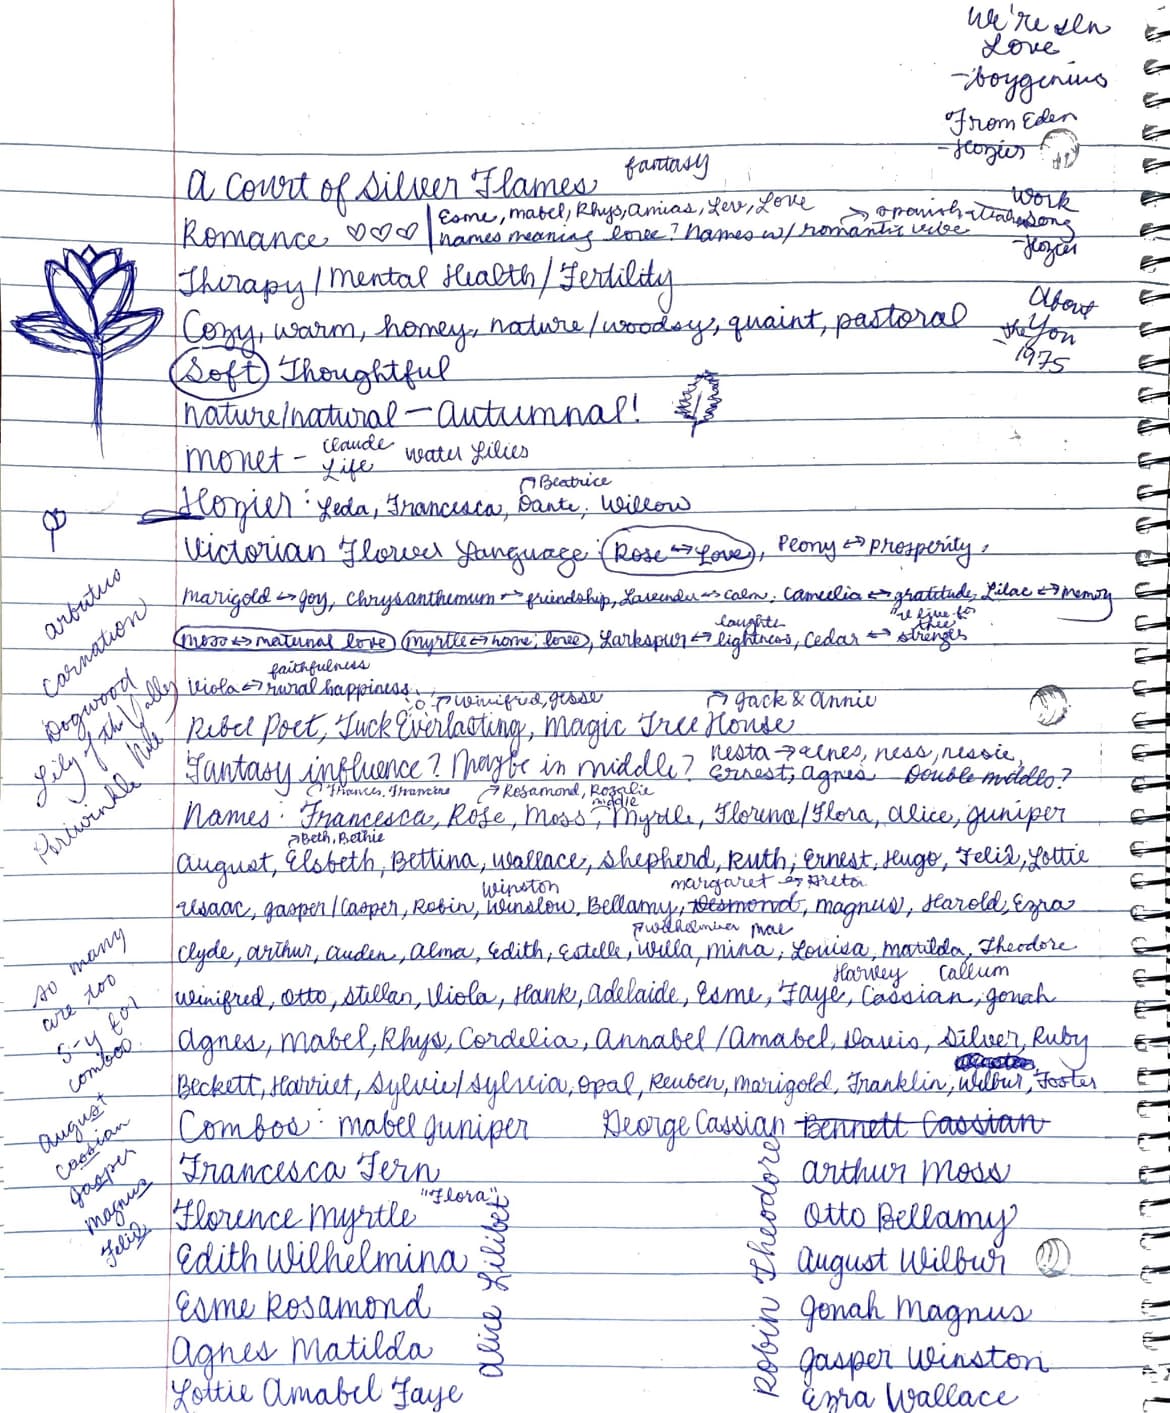 We're In
Love
-boygenius
From Eden
-Hozier
Work
Song
-Hozier
About
You
-the
1975
A Court of Silver Flames fantasy
Romance ♡♡♡ | Esme, Mabel, Rhys, Amias, Lev, Love
names meaning love? Names w/ romantic vibe
Therapy/Mental Health/Fertility
Cozy, warm, homey, nature/woodsy, quaint, pastoral
Soft Thoughtful
nature/natural - autumnal!
Monet - Claude Water Lilies
Life
Beatrice
Hozier: Leda, Francesca, Dante, Willow
Victorian Flower Language: Rose ↔ Love, Peony ↔ prosperity,
Marigold ↔ joy, Chrysanthemum ↔ friendship, Lavender ↔ calm, Camellia ↔ gratitude, Lilac ↔ memory
Moss ↔ maternal love Myrtle ↔ home, love, Larkspur ↔ lightness, Cedar ↔ strength
"I live for
thee
faithfulness
Viola ↔ rural happiness
→ Winifred, Jesse → Jack & Annie
Rebel Poet, Tuck Everlasting, Magic Tree House
Fantasy influence? Maybe in middle? Nesta → Agnes, Ness, Nessie,
Ernest, Agnes Double middles?
Frances, Francine → Rosamond, Rosalie
middle
Names: Francesca, Rose, Moss, Myrtle, Florence/Flora, Alice, Juniper
→ Beth, Bethie
August, Elsbeth, Bettina, Wallace, Shepherd, Ruth, Ernest, Hugo, Felix, Lottie
Winston Margaret → Greta
Isaac, Jasper/Casper, Robin, Winslow, Bellamy, Desmond, Magnus, Harold, Ezra
→ Wilhelmina Mae
Clyde, Arthur, Auden, Alma, Edith, Estelle, Willa, Mina, Louisa, Matilda, Theodore
Harvey Callum
Winifred, Otto, Stellan, Viola, Hank, Adelaide, Esme, Faye, Cassian, Jonah
Agnes, Mabel, Rhys, Cordelia, Annabel/Amabel, Davis, Silver, Ruby
Beckett, Harriet, Sylvie/Sylvia, Opal, Reuben, Marigold, Franklin, Wilbur, Foster
Combos: Mabel Juniper
Francesca Fern
Florence Myrtle "Flora"
Edith Wilhelmina
Esme Rosamond
Agnes Matilda
Lottie Amabel Faye
Alice Lilibet
George Cassian Bennett Cassian
Arthur Moss
Otto Bellamy
August Wilbur
Jonah Magnus
Jasper Winston
Ezra Wallace
Robin Theodore
Arbutus
Carnation
Dogwood
Lily of the Valley
Periwinkle
So many
are too
S-y for
combos.
August
Cassian
Jasper
Magnus
Felix